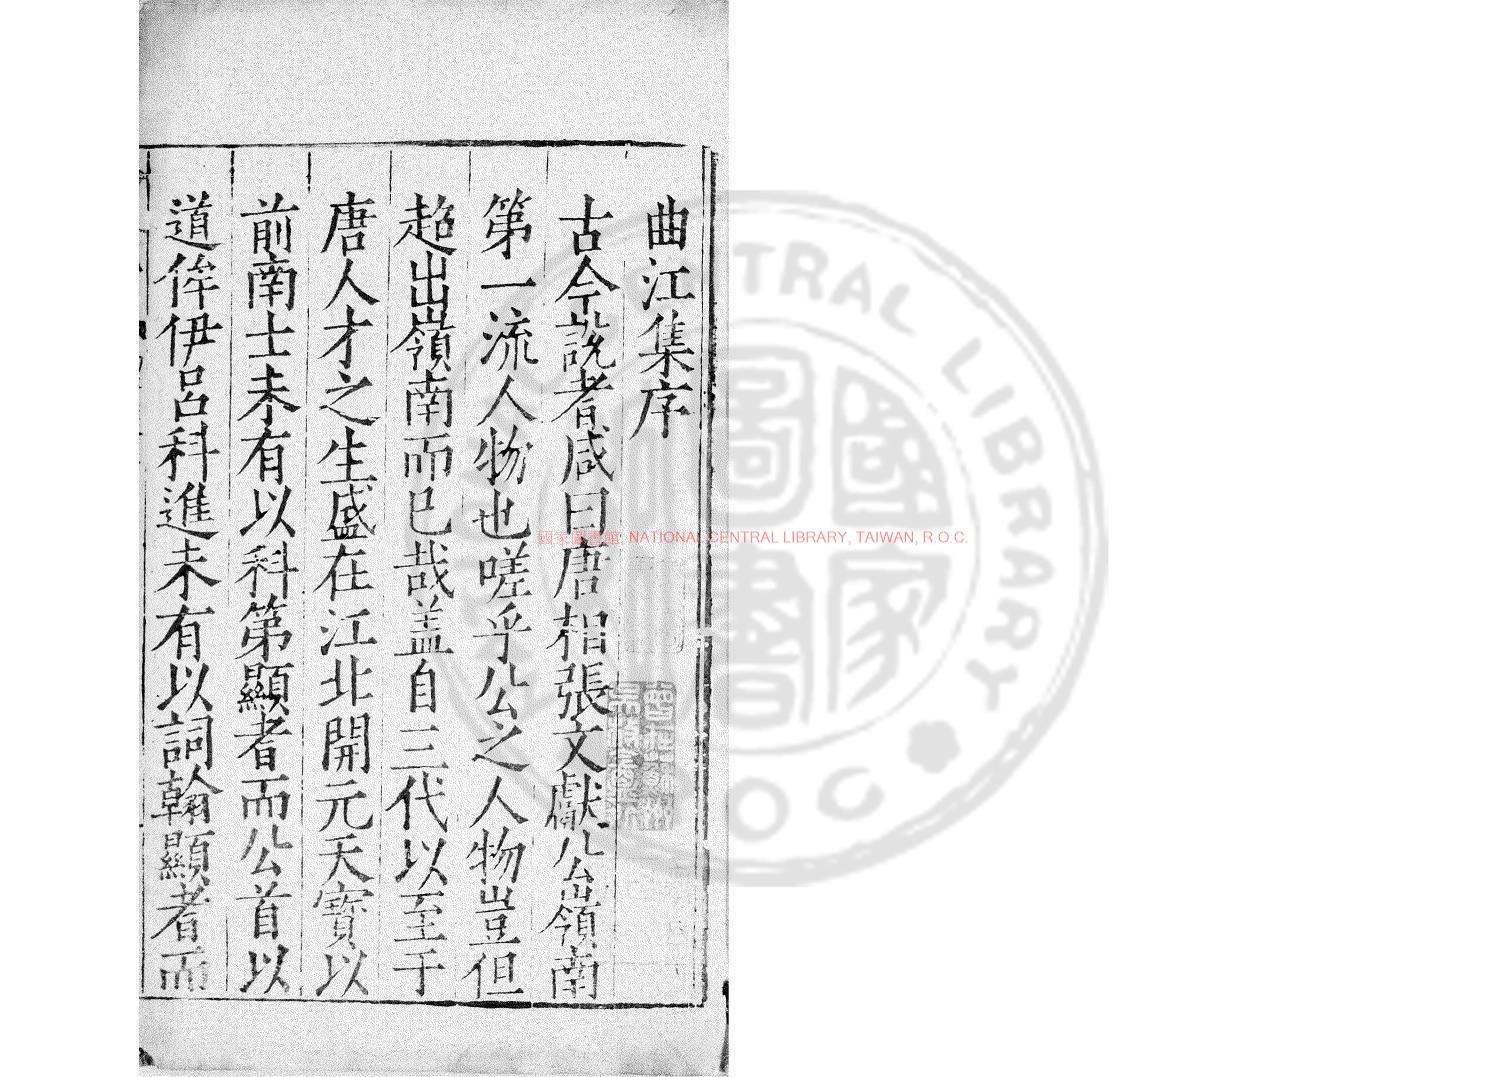 曲江集序
古今說者咸曰唐相張文獻公嶺南
第一流人物也嗟乎公之人物豈但
超出嶺南而已哉盖自三代以至于
唐人才之生盛在江北開元天寶以
前南士未有以科第顯者而公首以
道侔伊呂科進未有以詞翰顯者而
國家圖書館 NATIONAL CENTRAL LIBRARY, TAIWAN, R.O.C.
NATIONAL CENTRAL LIBRARY
R.O.C.
國家圖書